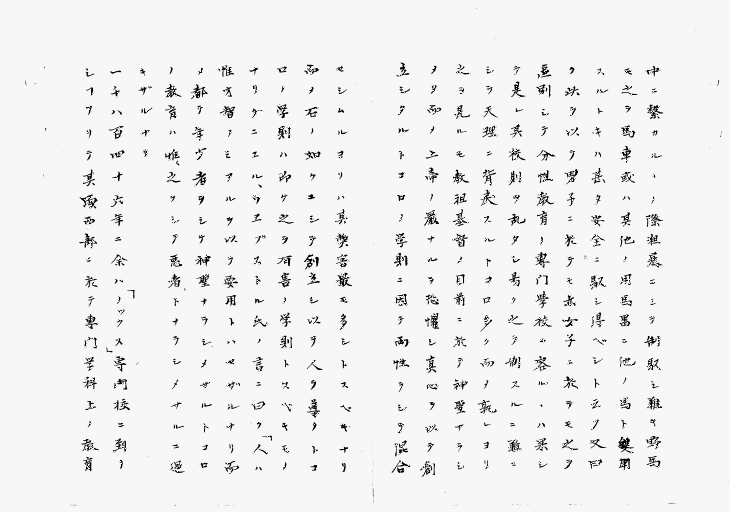 中ニ繋カルヽノ際粗暴ニシテ御馭シ難キ野馬
モ之ヲ馬車或ハ其他ノ用馬畧ニ他ノ馬ト用
スルトキハ甚タ安全ニ馭シ得ベシト云ク又曰
ク此ヲ以テ男子ニ於テモ亦女子ニ於テモ之ヲ
區別シテ分性教育ノ專門學校ニ容ルヽハ果シ
テ是レ其校則ヲ乱タシ易ク之ヲ御スルニ難ニ
シテ天理ニ背戻スルトコロ多ク而メ孰レヨリ
之ヲ見ルモ教祖基督ノ目前ニ於テ神聖ナラシ
メタ而メ上帝ノ嚴ナルヲ恐懼シ真心ヲ以テ創
立シタルトコロノ学則ニ因テ両性ヲシテ混合
セシムルヨリハ其弊害最モ多シトスベキナリ
而メ右ノ如クニシテ創立シ以テ人ヲ導クトコ
ロノ学則ハ即ケ之ヲ有害ノ学則トスベキモノ
ナリダニエル、ウエブストル氏ノ言ニ曰ク「人ハ
惟才智ノミアルヲ以テ要用トハセザルナリ而
メ都テ年少者ヲシテ神聖ナラシメザルトコロ
ノ教育ハ惟之ヲシテ悪者トナラシメサルニ過
キザルナリ
一千八百四十六年ニ余ハ「ノックス」専門校ニ到リ
シニアリテ其頃西部ニ於テ専門学科上ノ教育